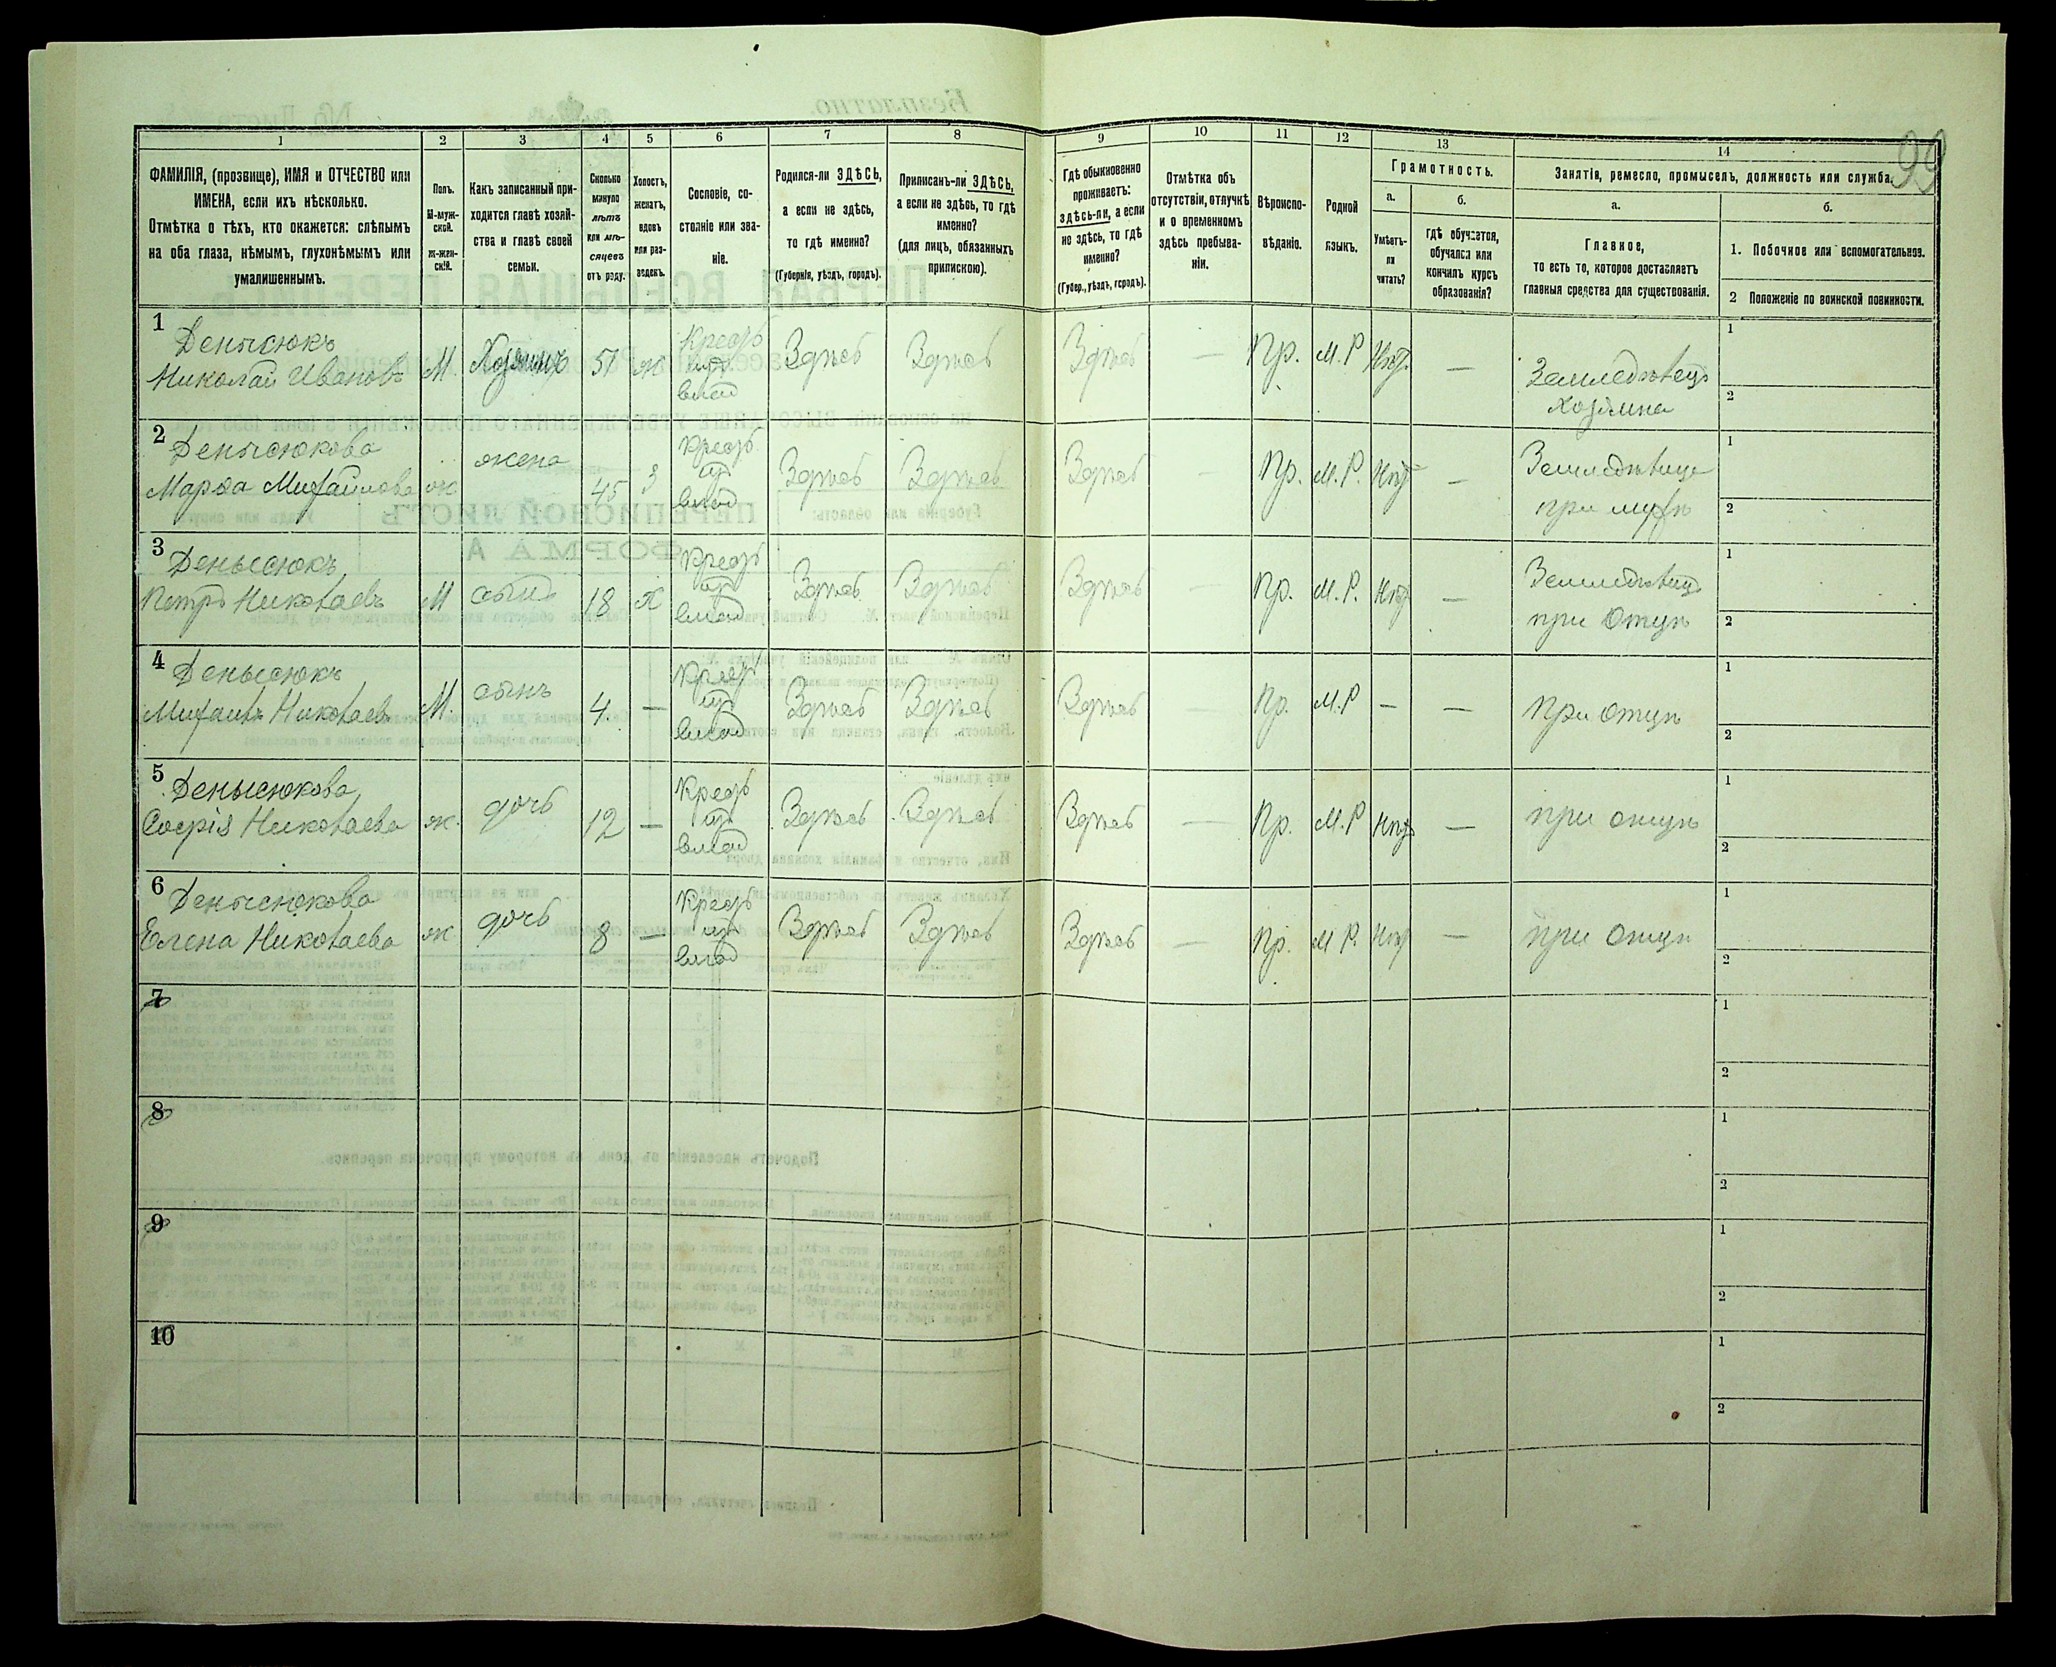 99
1 2 3 4 5 6 7 8 9 10 11 12 13 14
ФАМИЛІЯ, (прозвище), ИМЯ и ОТЧЕСТВО или
ИМЕНА, если ихъ нѣсколько.
Отмѣтка о тѣхъ, кто окажется: слѣпымъ
на оба глаза, нѣмымъ, глухонѣмымъ или
умалишеннымъ.
Полъ.
М-муж-
ской.
ж-жен-
скій.
Какъ записанный при-
ходится главѣ хозяй-
ства и главѣ своей
семьи.
Сколько
минуло
лѣтъ
или мѣ-
сяцевъ
отъ роду.
Холостъ,
женатъ,
вдовъ
или раз-
веденъ.
Сословіе, со-
стояніе или зва-
ніе.
Родился-ли ЗДѢСЬ,
а если не здѣсь,
то гдѣ именно?
(Губернія, уѣздъ, городъ).
Приписанъ-ли ЗДѢСЬ,
а если не здѣсь, то гдѣ
именно?
(для лицъ, обязанныхъ
припискою).
Гдѣ обыкновенно
проживаетъ:
здѣсь-ли, а если
не здѣсь, то гдѣ
именно?
(Губер., уѣздъ, городъ).
Отмѣтка объ
отсутствіи, отлучкѣ
и о временномъ
здѣсь пребыва-
ніи.
Вѣроиспо-
вѣданіе.
Родной
языкъ.
Грамотность.
а. б.
Умѣетъ-
ли
читать?
Гдѣ обучается,
обучался или
кончилъ курсъ
образованія?
Занятія, ремесло, промыселъ, должность или служба.
а. б.
Главное,
то есть то, которое доставляетъ
главныя средства для существованія.
1. Побочное или вспомогательное.
2 Положеніе по воинской повинности.
1 Денысюкъ Крест 1
Николай Ивановъ М. Хозяинъ 51 ж влад Здѣсь Здѣсь Здѣсь — Пр. М.Р Нѣт. — Земледѣлецъ 2
хозяина
2 Денысюкова жена Крест 1
Марѳа Михайлова ж 45 з влад Здѣсь Здѣсь Здѣсь — Пр. М.Р. Нѣт — Земледѣлица 2
при мужѣ
3 Денысюкъ Крест 1
Петръ Николаевъ М сынъ 18 х влад Здѣсь Здѣсь Здѣсь — Пр. М.Р. Нѣт — Земледѣлецъ 2
при Отцѣ
4 Денысюкъ Крест 1
Михаилъ Николаевъ М. сынъ 4 — влад Здѣсь Здѣсь Здѣсь — Пр. М.Р — — При отцѣ 2
5 Денысюкова Крест 1
Софія Николаева ж. дочь 12 — влад Здѣсь Здѣсь Здѣсь — Пр. М.Р Нѣт — при отцѣ 2
6 Денысюкова Крест 1
Елена Николаева ж дочь 8 — влад Здѣсь Здѣсь Здѣсь — Пр. М.Р. Нѣт — при отцѣ 2
7 1
2
8 1
2
9 1
2
10 1
2